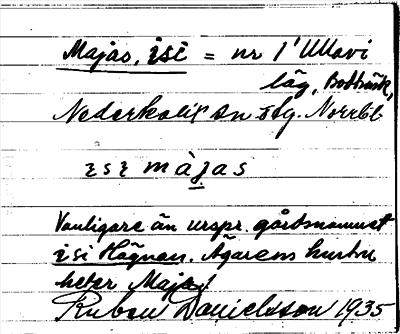 Majas, isi = nr 1 Ullavi
låg, Bobränk,
Nederkalix sn ötg. Norrbl
isi màjas
Vanligare än urspr. gårdsnamnet
isi Hägnan. Ägarens hustru
heter Maja.
Ruben Danielsson 1935